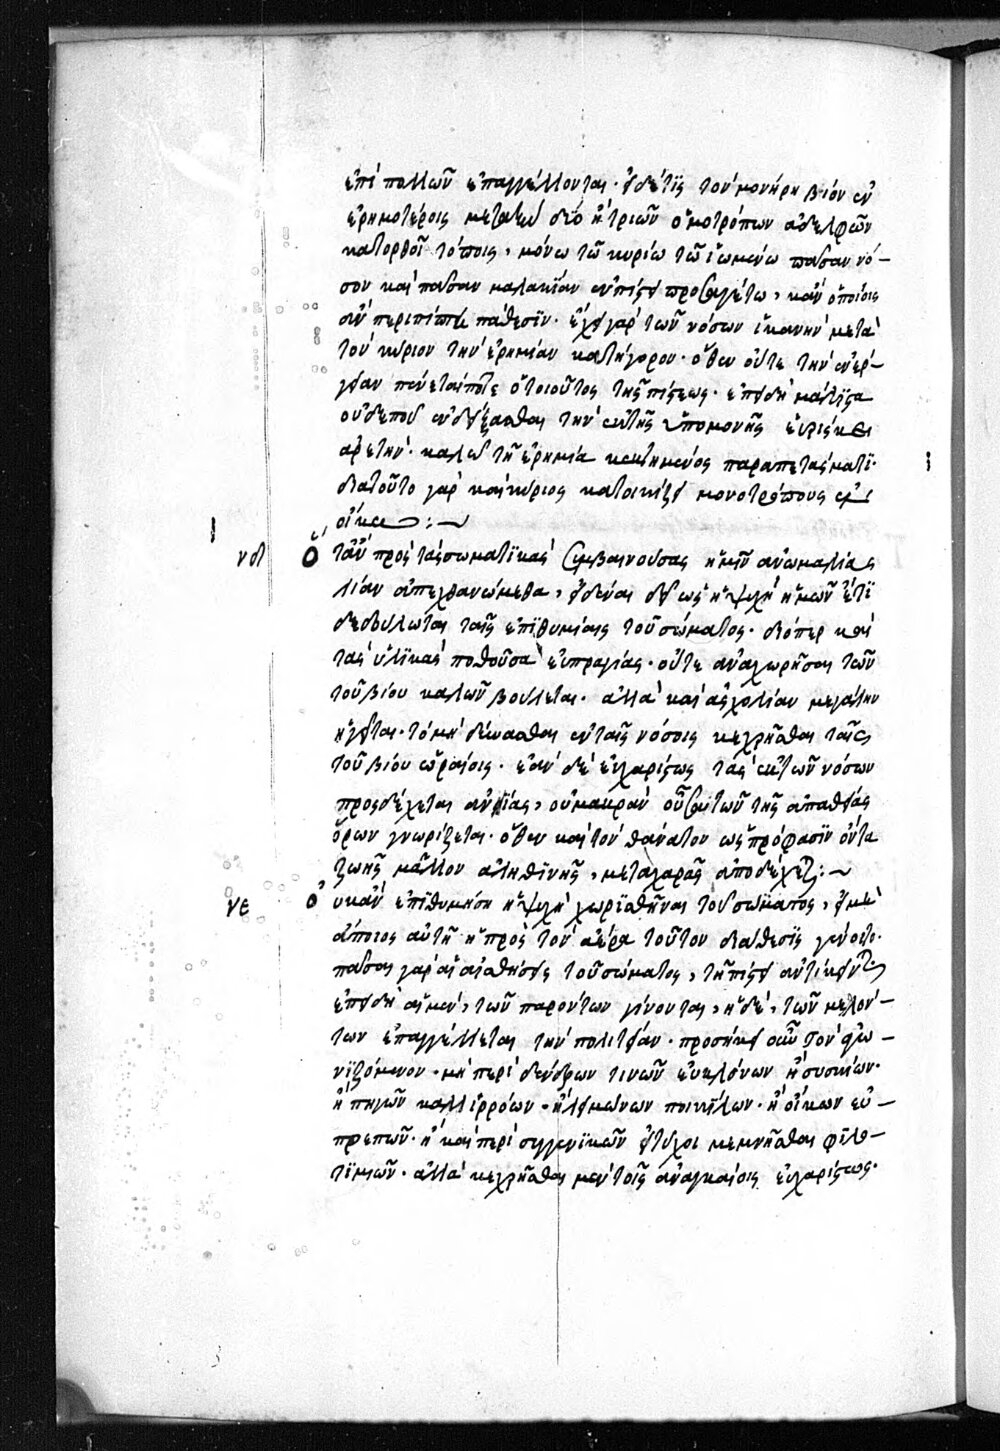 ἐπὶ πολλῶν ἐπαγγέλλονται· εἰ δέ τϊς τὸν μονήρη βιόν ἐν
ἐρημοτέροις μετὰ δύο ἢ τριῶν ὁμοτρόπων ἀδελφῶν
κατορθοῖ τόποις, μόνω τῶ κυρίω τῶ ἰωμένω πᾶσαν νό-
σον καὶ πᾶσαν μαλακΐαν ἐν πίστει προσαγέτω, κἂν ὁποίοις
ἂν περιπίπτη πάθεσϊν· ἔχει γὰρ τῶν νόσων ἵκανην μετὰ
τὸν κύριον τὴν ἐρημίαν παρήγορον· ὅθεν οὔτε τὴν ἐνέρ-
γειαν πένεταί ποτε ὁ τοιοῦτος τῆς πίστεως· ἐπειδὴ μάλϊστα
οὐδέπου ἐνδείξασθαι τὴν ἐκ τῆς ὑπομονῆς εὑρίσκει
ἀρετήν· καλῶ τῆ ἐρημία κεκτημένος παραπετάσματι·
διὰ τοῦτο γὰρ καὶ κύριος κατοικίζει μονοτρόπους ἐν
οἴκω:~
νδ Ὅταν πρὸς τὰς σωματϊκὰς συμβαινούσας ἡμῖν ἀνωμαλίας
λίαν ἀπεχθανώμεθα, εἰδέναι δεῖ ὡς ἡ ψυχὴ ἡμῶν ἔτϊ
δεδούλωται ταῖς ἐπϊθυμίαις τοῦ σώματος· διόπερ καὶ
τὰς ὑλϊκὰς ποθοῦσα εὐπραγίας· οὔτε ἀναχωρῆσαι τῶν
τοῦ βίου καλῶν βούλεται· ἀλλὰ καὶ ἀσχολίαν μεγάλην
ἡγεῖται· τὸ μὴ δύνασθαι ἐν ταῖς νόσοις κεχρῆσθαι τοῖς
τοῦ βίου ὡραίοις· ἐὰν δὲ εὐχαρίστως τὰς ἐκ τῶν νόσων
προσδέχεται ἀνίας, οὐ μακρὰν οὖσα τῶν τῆς ἀπαθείας
ὅρων γνωρίζεται· ὅθεν καὶ τὸν θάνατον ὡς πρόφασϊν ὄντα
ζωῆς μᾶλλον ἀληθϊνῆς, μετὰ χαρᾶς ἀποδέχεται:~
νε Οὐκ ἂν ἐπϊθυμήση ἡ ψυχὴ χωρϊσθῆναι τοῦ σώματος, εἰ μὴ
ἄποιος αὐτῆ ἡ πρὸς τὸν ἀέρα τοῦτον διάθεσϊς γένοιτο·
πᾶσαι γὰρ αἱ αἰσθήσεις τοῦ σώματος, τῆ πίστει ἀντίκεινται
ἐπειδὴ αἱ μὲν, τῶν παρόντων γίνονται, ἡ δὲ, τῶν μελλόν-
των ἐπαγγέλλεται τὴν πολιτείαν· προσήκει οὖν τὸν ἀγω-
νιζόμενον· μὴ περὶ δένδρων τινῶν εὐκλόνων ἢ συσκίων·
ἢ πηγῶν καλλιρρόων· ἢ λειμώνων ποικίλων· ἢ οἴκων εὐ-
πρεπῶν· ἢ καὶ περὶ συγγενϊκῶν εἰ τύχοι μεμνῆσθαι φϊλο-
τϊμιῶν· ἀλλὰ κεχρῆσθαι μὲν τοῖς ἀναγκαίοις εὐχαρίστως·